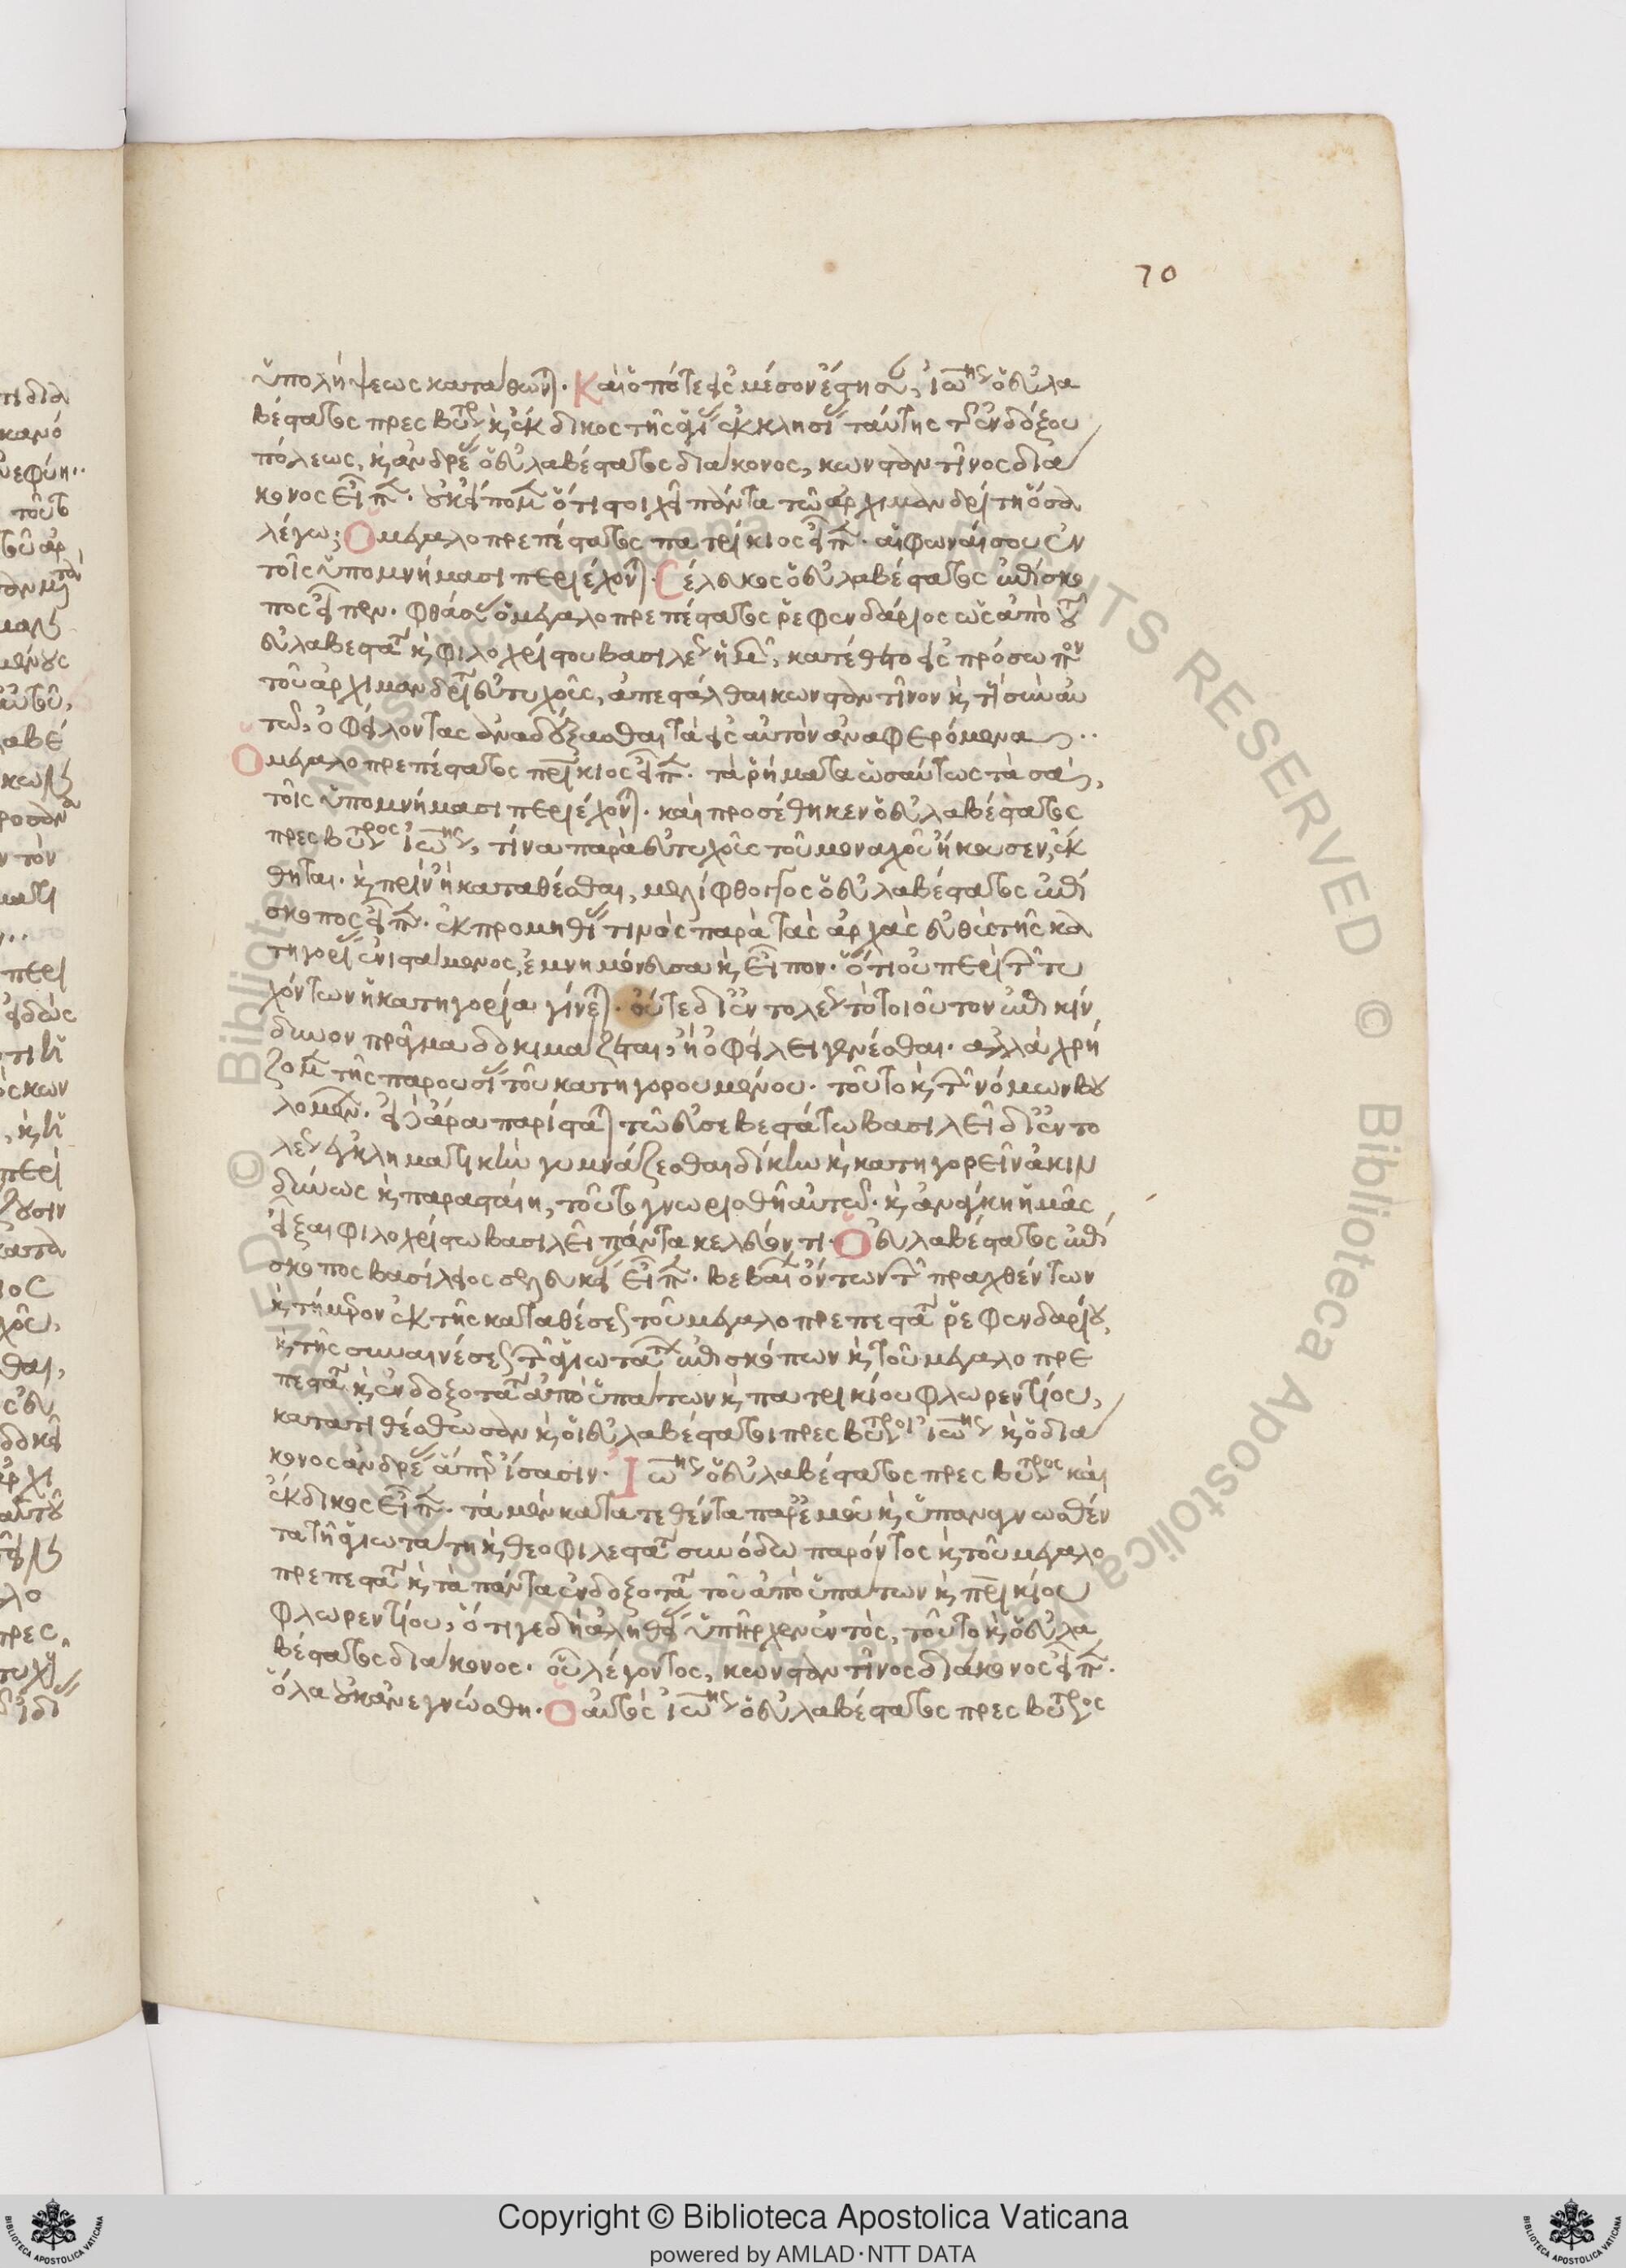 70
ὑπολήψεως καταθῶνται. Καὶ ὁπότε εἰς μέσον ἔστησαν, ἰωάννης ὁ εὐλα
βέστατος πρεσβύτερος καὶ ἔκδικος τῆς ἁγίας ἐκκλησίας ταύτης τῆς ἐνδόξου
πόλεως, καὶ ἀνδρέας ὁ εὐλαβέστατος διάκονος, κωνσταντῖνος διά
κονος εἶπεν. οὐκ εἴπομεν ὅτι στοιχεῖ πάντα τῶ ἀρχιμανδρίτη ὅσα
λέγω; Ὁ μεγαλοπρεπέστατος πατρίκιος εἶπεν. αἱ φωναί σου ἐν
τοῖς ὑπομνήμασι περιέχονται. Σέλευκος ὁ εὐλαβέστατος ἐπίσκο
πος εἶπεν. φθάσας ὁ μεγαλοπρεπέστατος ῥεφενδάριος ὡς ἀπὸ τοῦ
εὐλαβεστάτου καὶ φιλοχρίστου βασιλέως ἡμῶν, κατέθετο εἰς πρόσωπον
τοῦ ἀρχιμανδρίτου εὐτυχοῦς, ἀπεστάλθαι κωνσταντῖνον καὶ τοὺς σὺν αὐ
τῶ, ὀφείλοντας ἀναδέξασθαι τὰ εἰς αὐτὸν ἀναφερόμενα
Ὁ μεγαλοπρεπέστατος πατρίκιος εἶπεν. τὰ ῥήματα ὡσαύτως τὰ σὰ,
τοῖς ὑπομνήμασι περιέχονται. καὶ προσέθηκεν ὁ εὐλαβέστατος
πρεσβύτερος ἰωάννης, τίνα παρὰ εὐτυχοῦς τοῦ μοναχοῦ ἤκουσεν, ἐκ
θῆται. καὶ πρὶν ἢ καταθέσθαι, μελίφθογγος ὁ εὐλαβέστατος ἐπί
σκοπος εἶπεν. ἐκ προμηθείας τινὸς παρὰ τὰς ἀρχὰς εὐθὺς τῆς κα
τηγορίας ἐνιστάμενος, ἐμνημόνευσα καὶ εἶπον. ὅτι οὐ περὶ τῶν τυ
χόντων ἡ κατηγορία γίνεται. οὔτε δι' ἐντολέως τὸ τοιοῦτον ἐπικίν
δυνον πρᾶγμα δοκιμάζεται, ἢ ὀφείλει γενέσθαι. ἀλλὰ χρή
ζομεν τῆς παρουσίας τοῦ κατηγορουμένου. τοῦτο καὶ τῶν νόμων βου
λομένων. εἰ ἄρα παρίσταται τῶ εὐσεβεστάτω βασιλεῖ δι' ἐντο
λέως ἐγκληματικὴν γυμνάζεσθαι δίκην καὶ κατηγορεῖν ἀκιν
δύνως καὶ παρασταίη, τοῦτο γνωρισθῆ αὐτῶ. καὶ ἀνάγκη ἡμᾶς
εἶξαι φιλοχρίστω βασιλεῖ πάντα κελεύοντι. Ὁ εὐλαβέστατος ἐπί
σκοπος βασίλειος σελευκείας εἶπεν. βεβαίων ὄντων τῶν πραχθέντων
καὶ τήμερον ἐκ τῆς καταθέσεως τοῦ μεγαλοπρεπεστάτου ῥεφενδαρίου,
καὶ τῆς συναινέσεως τῶν ἁγιωτάτων ἐπισκόπων καὶ τοῦ μεγαλοπρε
πεστάτου καὶ ἐνδοξοτάτου ἀπὸ ὑπάτων καὶ πατρικίου φλωρεντίου,
κατατιθέσθωσαν καὶ οἱ εὐλαβέστατοι πρεσβύτεροι ἰωάννης καὶ ὁ διά
κονος ἀνδρέας ἅπερ ἴσασιν. Ἰωάννης ὁ εὐλαβέστατος πρεσβύτερος καὶ
ἔκδικος εἶπεν. τὰ μὲν κατατεθέντα παρ' ἐμοῦ καὶ ὑπαναγνωσθέν
τα τῆ ἁγιωτάτη καὶ θεοφιλεστάτη συνόδω παρόντος καὶ τοῦ μεγαλο
πρεπεστάτου καὶ τὰ πάντα ἐνδοξοτάτου τοῦ ἀπὸ ὑπάτων καὶ πατρικίου
φλωρεντίου, ὅτι γε δὴ ἀληθείας ὑπῆρχεν ἐντὸς, τοῦτο καὶ ὁ εὐλα
βέστατος διάκονος. οὗ λέγοντος, κωνσταντῖνος διάκονος εἶπεν.
ὅλα οὐκ ἀνεγνώσθη. Ὁ αὐτὸς ἰωάννης ὁ εὐλαβέστατος πρεσβύτερος
Copyright © Biblioteca Apostolica Vaticana
powered by AMLAD·NTT DATA